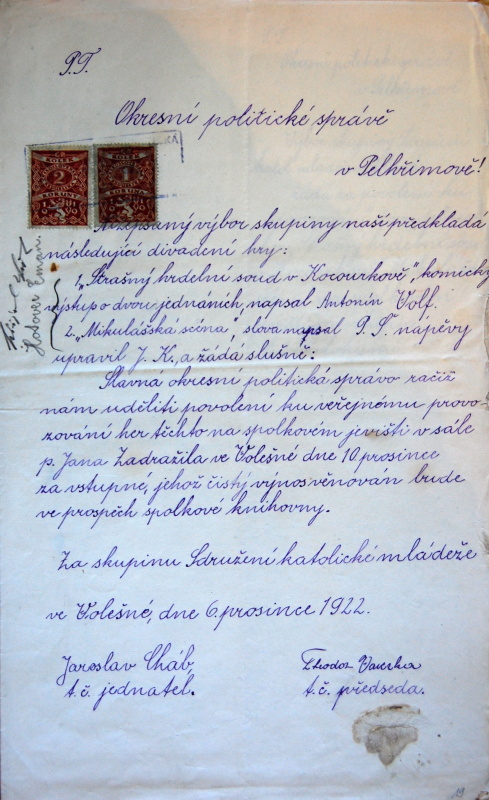 P.T.
Okresní politické správě
v Pelhřimově!
KOLEK 2 KORUNY
KOLEK 1 KORUNA
výbor skupiny naší předkládá
následující divadení hry:
1. „Strašný hrdelní soud v Kocourkově", komický
výstup o dvou jednáních, napsal Antonín Volf.
2. „Mikulášská scéna", slova napsal P. S. nápěvy
upravil J. K., a žádá slušně:
Slavná okresní politická správo račiž
nám uděliti povolení ku veřejnému provo-
zování her těchto na spolkovém jevišti v sále
p. Jana Zadražila ve Volešné dne 10 prosince
za vstupne, jehož čistý výnos věnován bude
ve prospěch spolkové knihovny.
Za skupinu Sdružení katolické mládeže
ve Volešné, dne 6. prosince 1922.
Jaroslav Cháb,
t. č. jednatel.
Theodor
t. č. předseda.
19